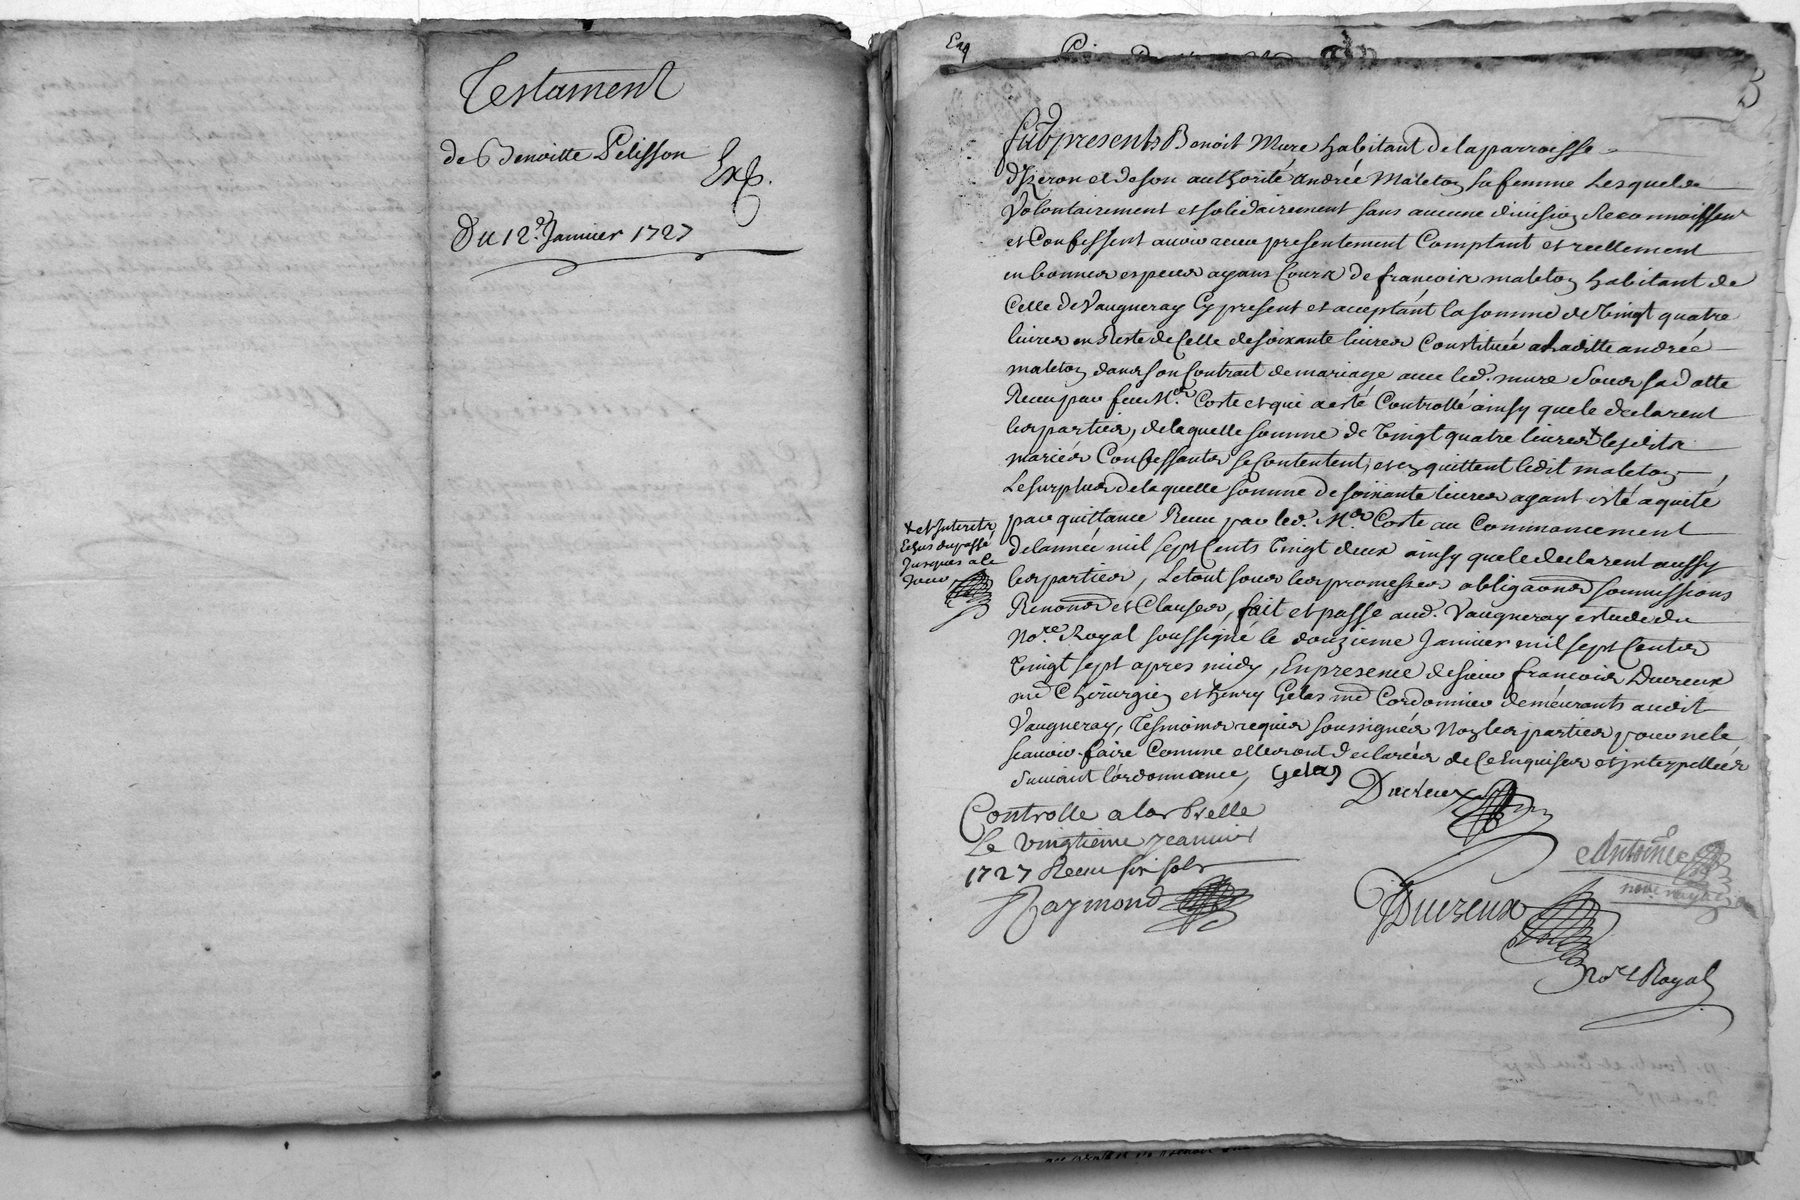 Testament
de Benoitte Pelisson
Exp.
Du 12e. Janvier 1727
Exp
furent presents Benoit Mure habitant de la parroisse
d'Izeron et de son authorité andreé Maleton sa femme Lesquels
Volontairement et solidairement sans aucune division Reconnoissent
et Confessent avoir receu presentement Comptant et reellement
en bonnes especes ayans Cours de francois maleton habitant de
Celle de Vaugneray Cy present et acceptant la somme de Vingt quatre
livres en Reste de Celle de soixante livres Constituée a laditte andreé
maleton dans son Contract de mariage avec led. mure pour sa dotte
Receu par feu Mr. Coste et qui a esté Controllé ainsy que le declarent
les parties, de laquelle somme de Vingt quatre livres + lesdits
mariés Confessants se Contentent, et en quittent ledit maleton,
Le surplus de laquelle somme de soixante livres ayant esté aquité
par quittance Receu par led. Mr. Coste au Commancement
+ et Interets
Echus du passé
Jusques a ce
Jour
de lannée mil sept Cents Vingt deux ainsy que le declarent aussy
les parties, Le tout sous les promesses obligaons soumissions
Renons et Clauses, fait et passé aud. Vaugneray estude du
Nore. Royal soussigné le douzieme Janvier mil sept Cents
Vingt sept apres midy, En presence de sieur francois Ducreux
md Chirurgien et henry Gelas md Cordonnier demeurants audit
Vaugneray, Tesmoins requis soussignés Non les parties pour ne le
scavoir faire Comme elles ont declarées de ce Enquises et interpellées
suivant l'ordonnance, Gelas
Ducreux
Controlle a lar Brelle
Le vingtieme jeanvier
1727 Receu six sols
Raymond
Antoine
Ducreux
Nore Royal